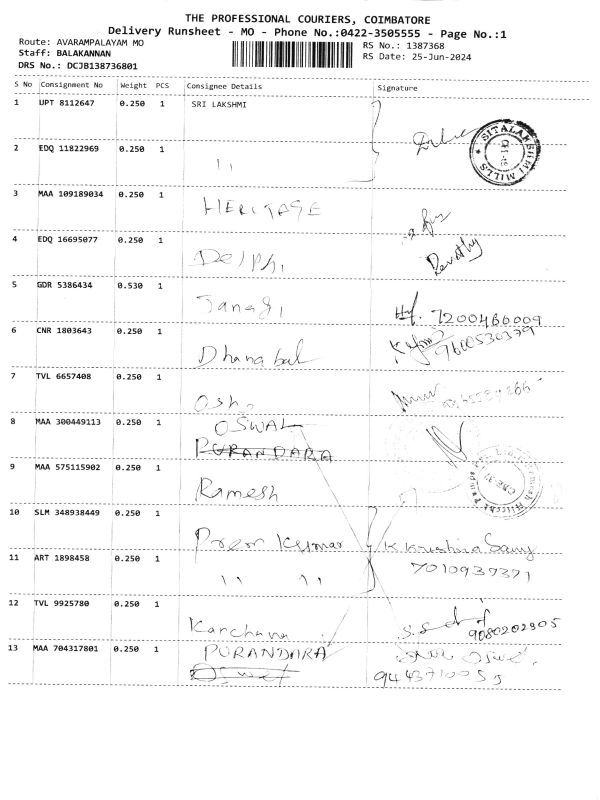 THE PROFESSIONAL COURIERS, COIMBATORE
Delivery Runsheet - MO - Phone No.:0422-3505555 - Page No.:1
Route: AVARAMPALAYAM MO
RS No.: 1387368
Staff: BALAKANNAN
RS Date: 25-Jun-2024
DRS No.: DCJB138736801
S No Consignment No Weight PCS Consignee Details Signature
1 UPT 8112647 0.250 1 SRI LAKSHMI
SITALAKSHMI MILLS
2 EDQ 11822969 0.250 1 ''
3 MAA 109189034 0.250 1 HERITAGE
4 EDQ 16695077 0.250 1 Delphi
5 GDR 5386434 0.530 1 Janagi 7200466009
6 CNR 1803643 0.250 1 Dhanabal 9600530379
7 TVL 6657408 0.250 1 Osho
8 MAA 300449113 0.250 1 OSWAL
PURANDARA
9 MAA 575115902 0.250 1 Ramesh
10 SLM 348938449 0.250 1 Prem Kumar K Krishna Samy
7010937371
11 ART 1898458 0.250 1 '' ''
12 TVL 9925780 0.250 1 Kanchana 9080202905
13 MAA 704317801 0.250 1 PURANDARA
Oswal 9443710055